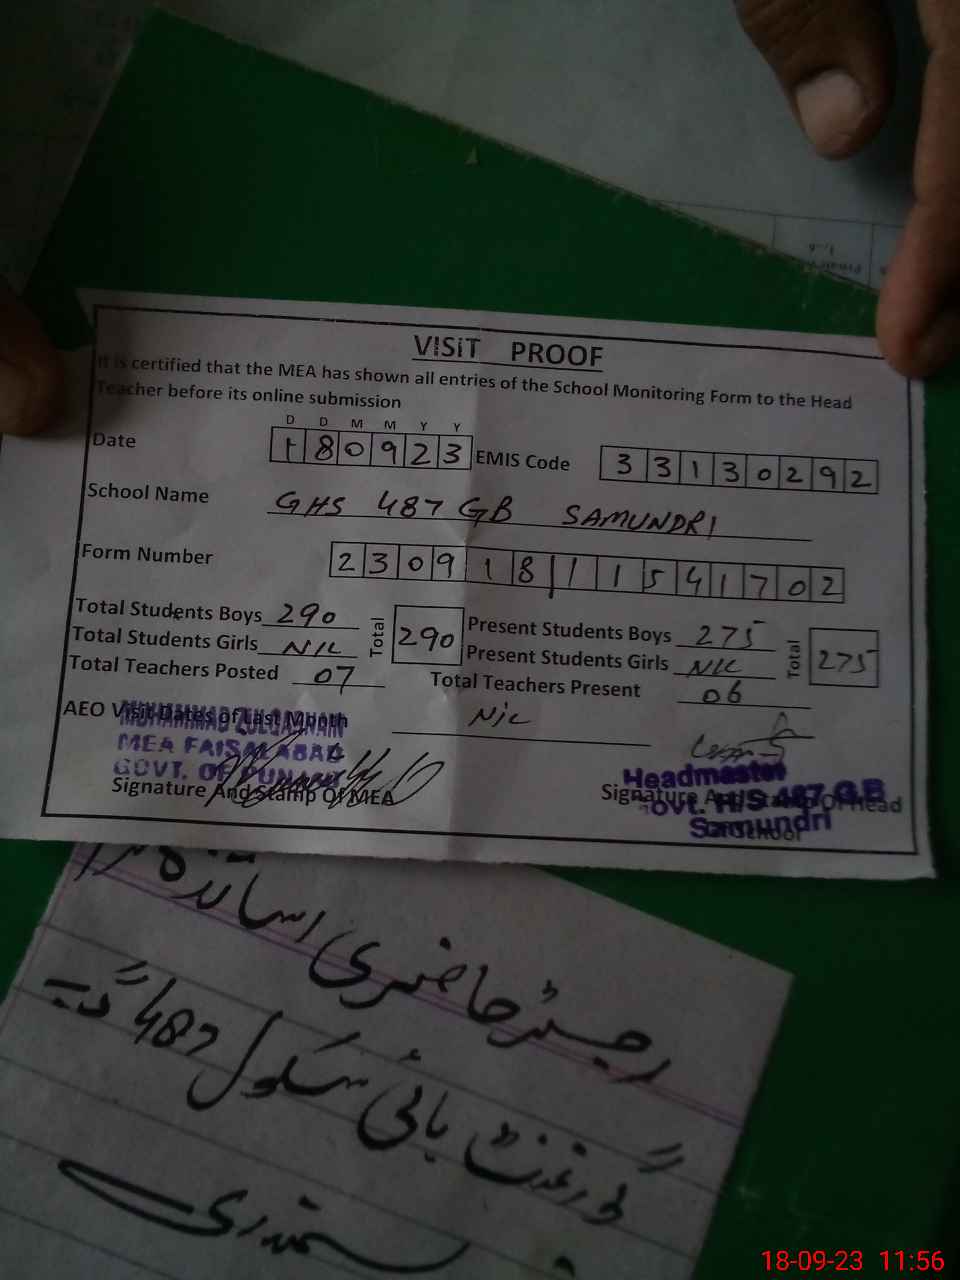 VISiT PROOF
It is certified that the MEA has shown all entries of the School Monitoring Form to the Head
Teacher before its online submission
D D M M Y Y
Date 180923 EMIS Code 33130292
School Name GHS 487 GB SAMUNDRI
Form Number 230918/1541702
Total Students Boys 290 Total 290 Present Students Boys 275 Total 275
Total Students Girls Nil Present Students Girls Nil
Total Teachers Posted 07 Total Teachers Present 06
AEO Visit Dates of Last Month Nil
MUHAMMAD ZULQARNAIN
MEA FAISALABAD
GOVT. OF PUNJAB
Signature And Stamp Of MEA
Headmaster
Govt. H/S 487 G.B
Samundri
Signature And Stamp Of Head
Of School
رجسٹر حاضری اساتذہ کرام
گورنمنٹ ہائی سکول 487 گ ب
سمندری
18-09-23 11:56